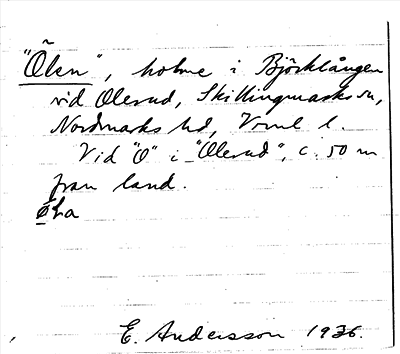 "Õlen", holme i Björklången
vid Olerud, Skillingmarks sn,
Nordmarks hd, Vrml l.
Vid "O" i "Olerud", c. 50 m
från land.
øLa
E. Andersson 1936.